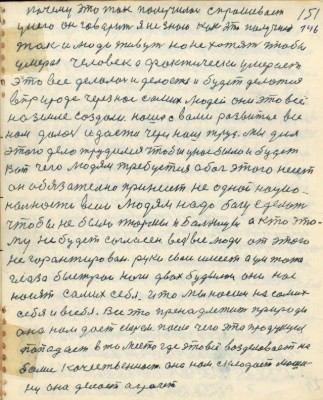 почему это так получилось спрашивает 151
у него он говорит я не знаю как это получил 146
так и люди живут но не хотят чтобы
умерал человек а фактически умерает
Это все делалось и делается и будет делатся
в природе через нас самих людей они это все
на земле создали
нам дали и дается через наш труд. Мы для
этого дело трудился чтобы у нас было и будет
Вот чего людям требуется а бог этого несет
он обязательно принесет не одной нацио-
нальности всем людям надо богу сделать
чтобы не было тюрьмы и больницы а кто это-
му не будет согласен все люди от этого
не гарантирован. руки свои имеет а ум тоже
глаза быстрые ноги двах будили они нас
носят самих себя. и то мы носим на самих
себя и всебя. Все это принадлежит природе
она нам дает сырой после чего это продукция
попадает в то место где это все возделовается на
более качественное она нам создает маши-
ну она делает